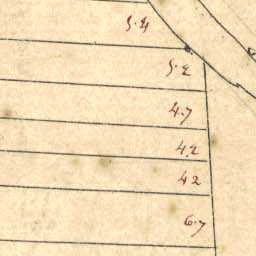 5.4
5.2
4.7
4.2
4.2
6.7